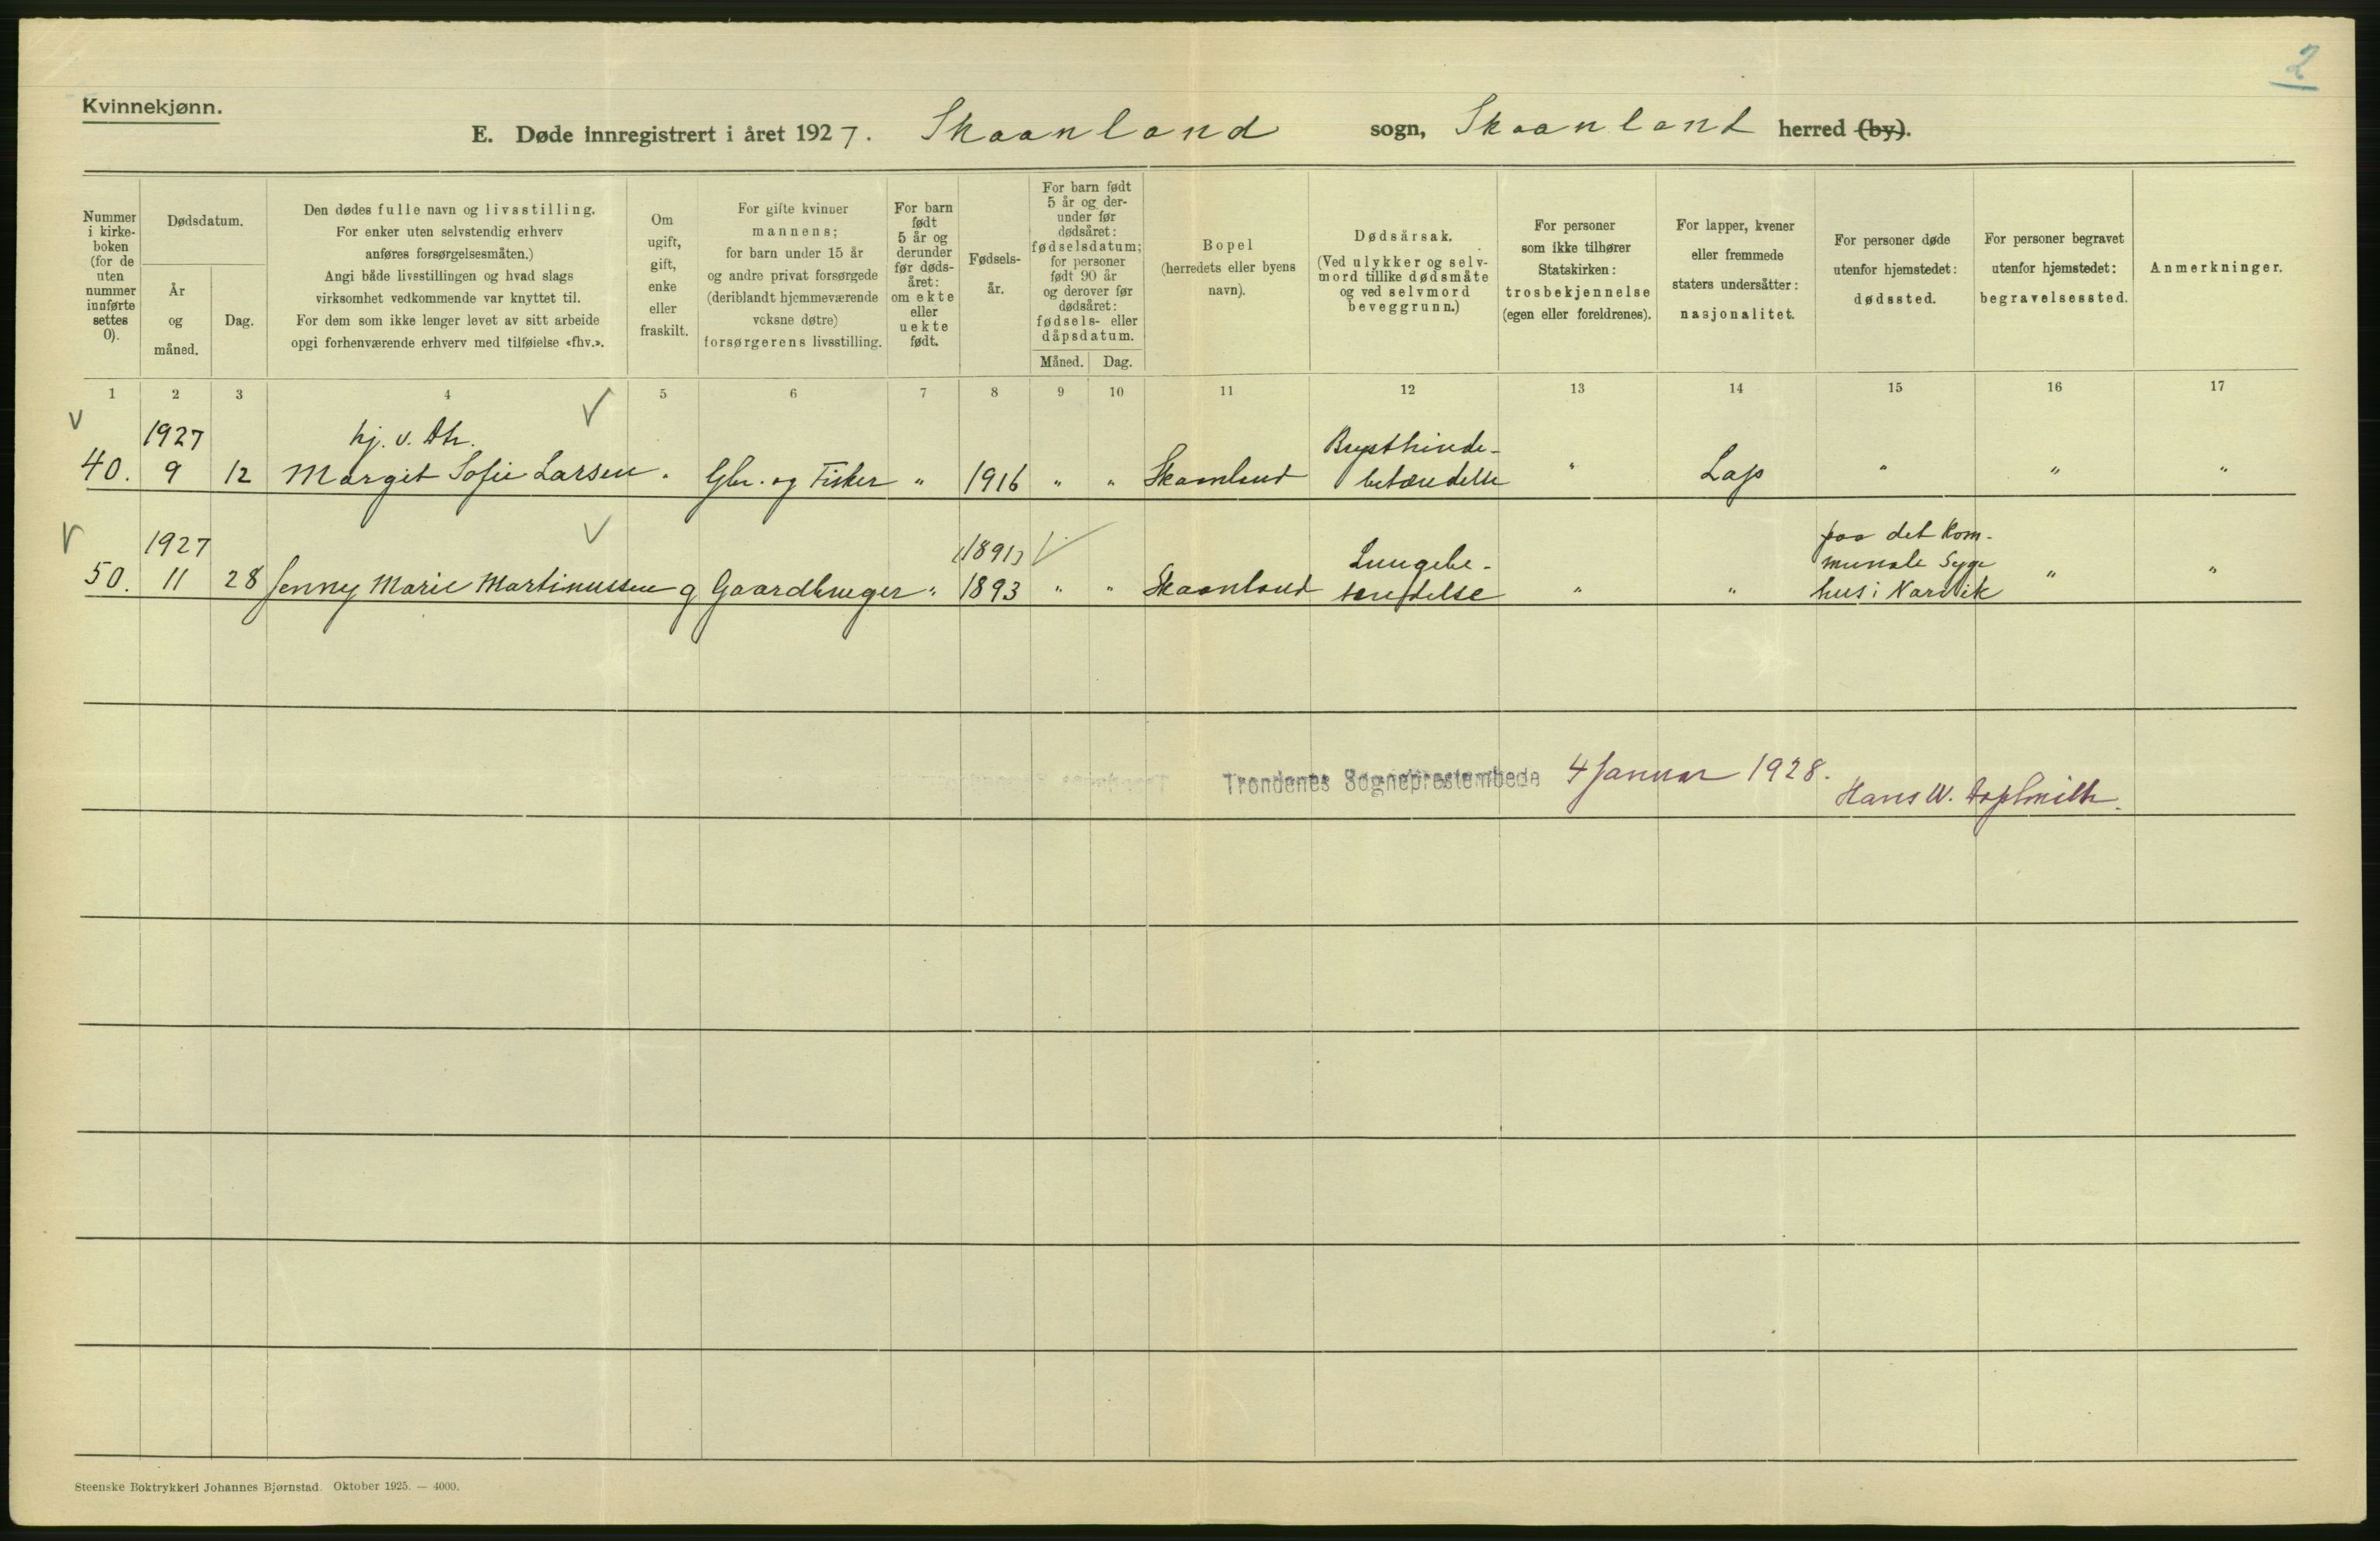 2
Kvinnekjønn.
E. Døde innregistrert i året 1927. Skaanland sogn, Skaanland herred (by).
Nummer i kirke- boken (for de uten nummer innførte settes 0).
Dødsdatum.
År og måned.
Dag.
Den dødes fulle navn og livsstilling.
For enker uten selvstendig erhverv
anføres forsørgelsesmåten.)
Angi både livsstillingen og hvad slags
virksomhet vedkommende var knyttet til.
For dem som ikke lenger levet av sitt arbeide
opgi forhenværende erhverv med tilføielse «fhv.».
Om ugift, gift, enke eller fraskilt.
For gifte kvinner
mannens;
for barn under 15 år
og andre privat forsørgede
(deriblandt hjemmeværende
voksne døtre)
forsørgerens livsstilling.
For barn født 5 år og derunder før døds- året: om ekte eller uekte født.
Fødsels- år.
For barn født 5 år og der- under før dødsåret: fødselsdatum; for personer født 90 år og derover før dødsåret: fødsels- eller dåpsdatum.
Måned. Dag.
Bopel
(herredets eller byens
navn).
Dødsårsak.
(Ved ulykker og selv-
mord tillike dødsmåte
og ved selvmord
beveggrunn.)
For personer
som ikke tilhører
Statskirken:
trosbekjennelse
(egen eller foreldrenes).
For lapper, kvener
eller fremmede
staters undersåtter:
nasjonalitet.
For personer døde
utenfor hjemstedet:
dødssted.
For personer begravet
utenfor hjemstedet:
begravelsessted.
Anmerkninger.
1 2 3 4 5 6 7 8 9 10 11 12 13 14 15 16 17
1927 hj. v. Dtr. Brysthinde-
40. 9 12 Margit Sofie Larsen " Gbr. og Fisker " 1916 " " Skaanland betændelse " Lap " " "
1927 (1891) Lungebe- paa det Kom-
munale Syge
50. 11 28 Jenny Marie Martinussen g Gaardbruger " 1893 " " Skaanland tændelse " " hus i Narvik " "
Trondenes Sogneprestembede 4 Januar 1928.
Hans W.
Steenske Boktrykkeri Johannes Bjørnstad. Oktober 1925. — 4000.